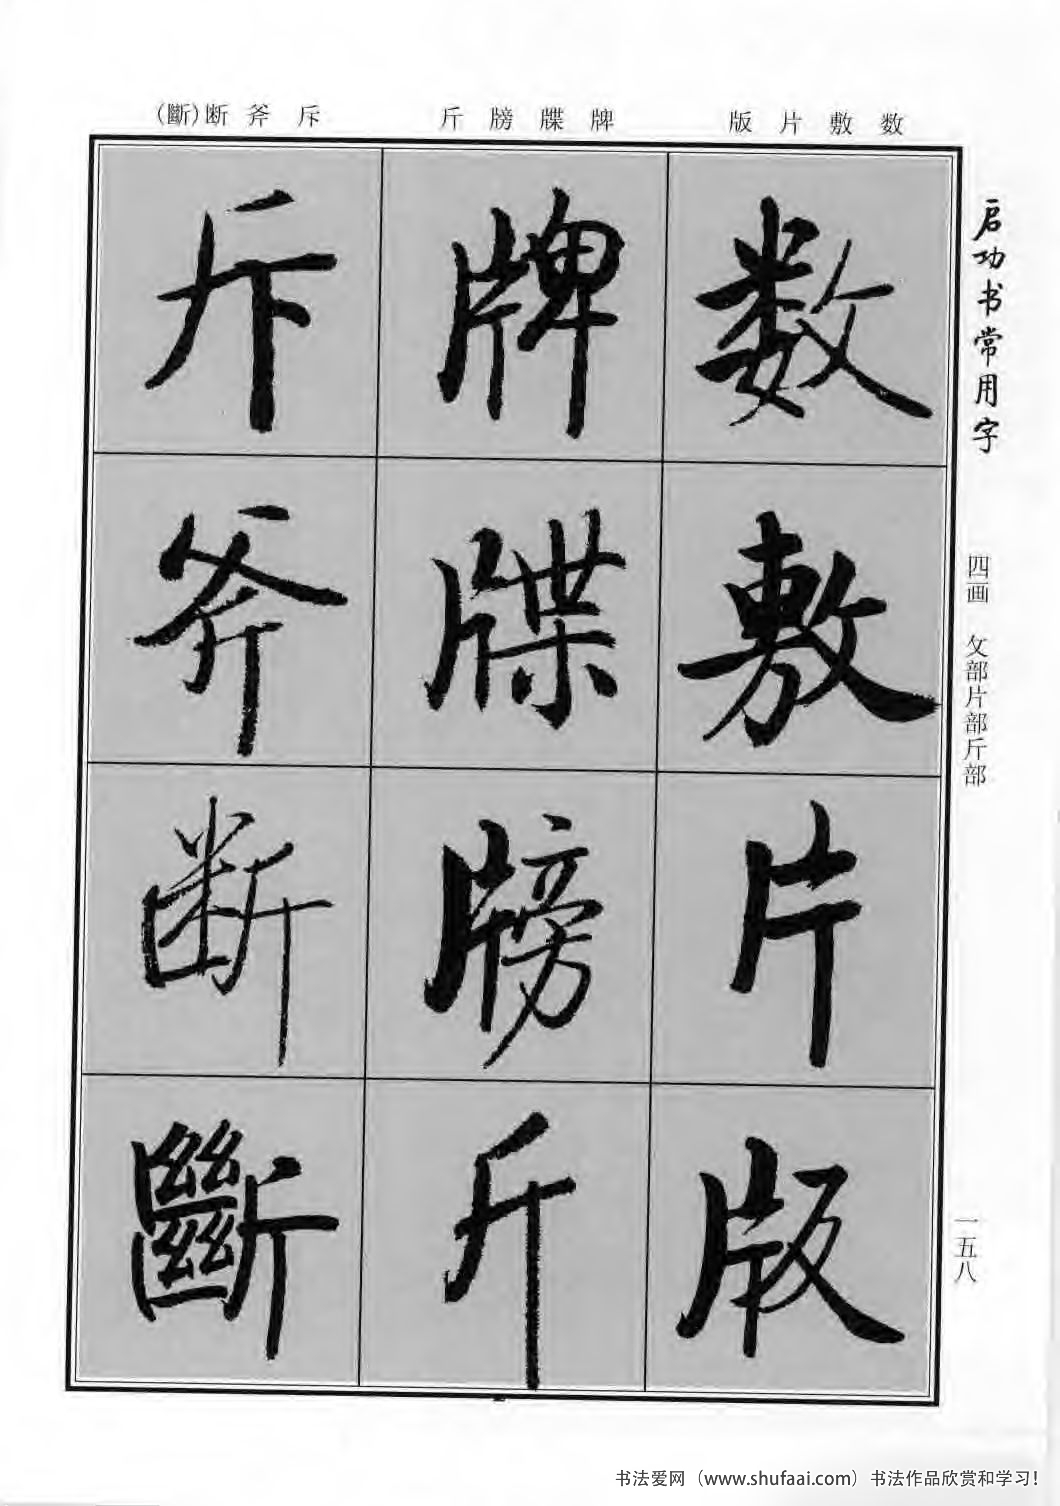 启功书常用字
四画 攵部片部斤部
一五八
数敷片版
牌牒牓斤
斥斧断(斷)
数
敷
片
版
牌
牒
牓
斤
斥
斧
断
斷
书法爱网（www.shufaai.com）书法作品欣赏和学习！